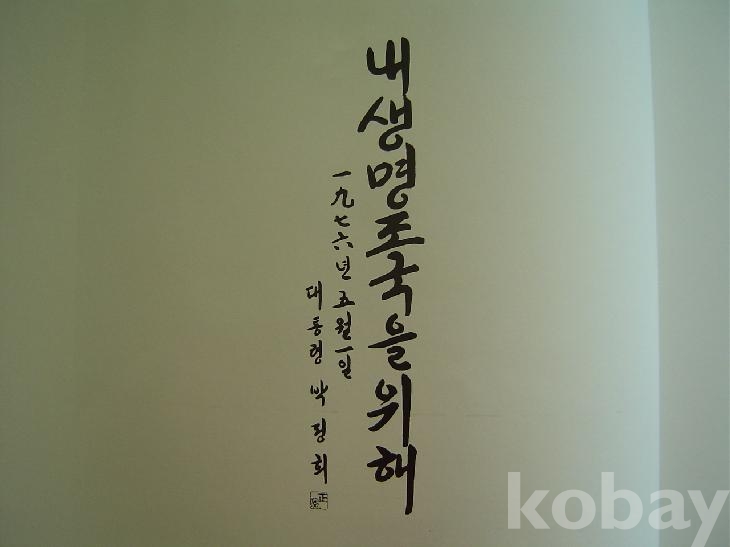 내 생명 조국을 위해
一九七六년 五월 一일
대통령 박정희
kobay